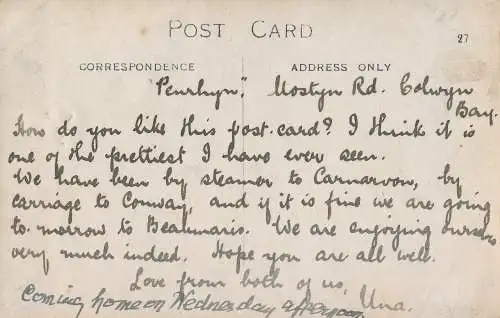 POST CARD
27
CORRESPONDENCE
ADDRESS ONLY
"Penrhyn," Mostyn Rd. Colwyn
Bay.
How do you like this post-card? I think it is
one of the prettiest I have ever seen.
We have been by steamer to Carnarvon, by
carriage to Conway, and if it is fine we are going
to-morrow to Beaumaris. We are enjoying ourselves
very much indeed. Hope you are all well.
Love from both of us,
Una.
Coming home on Wednesday afternoon